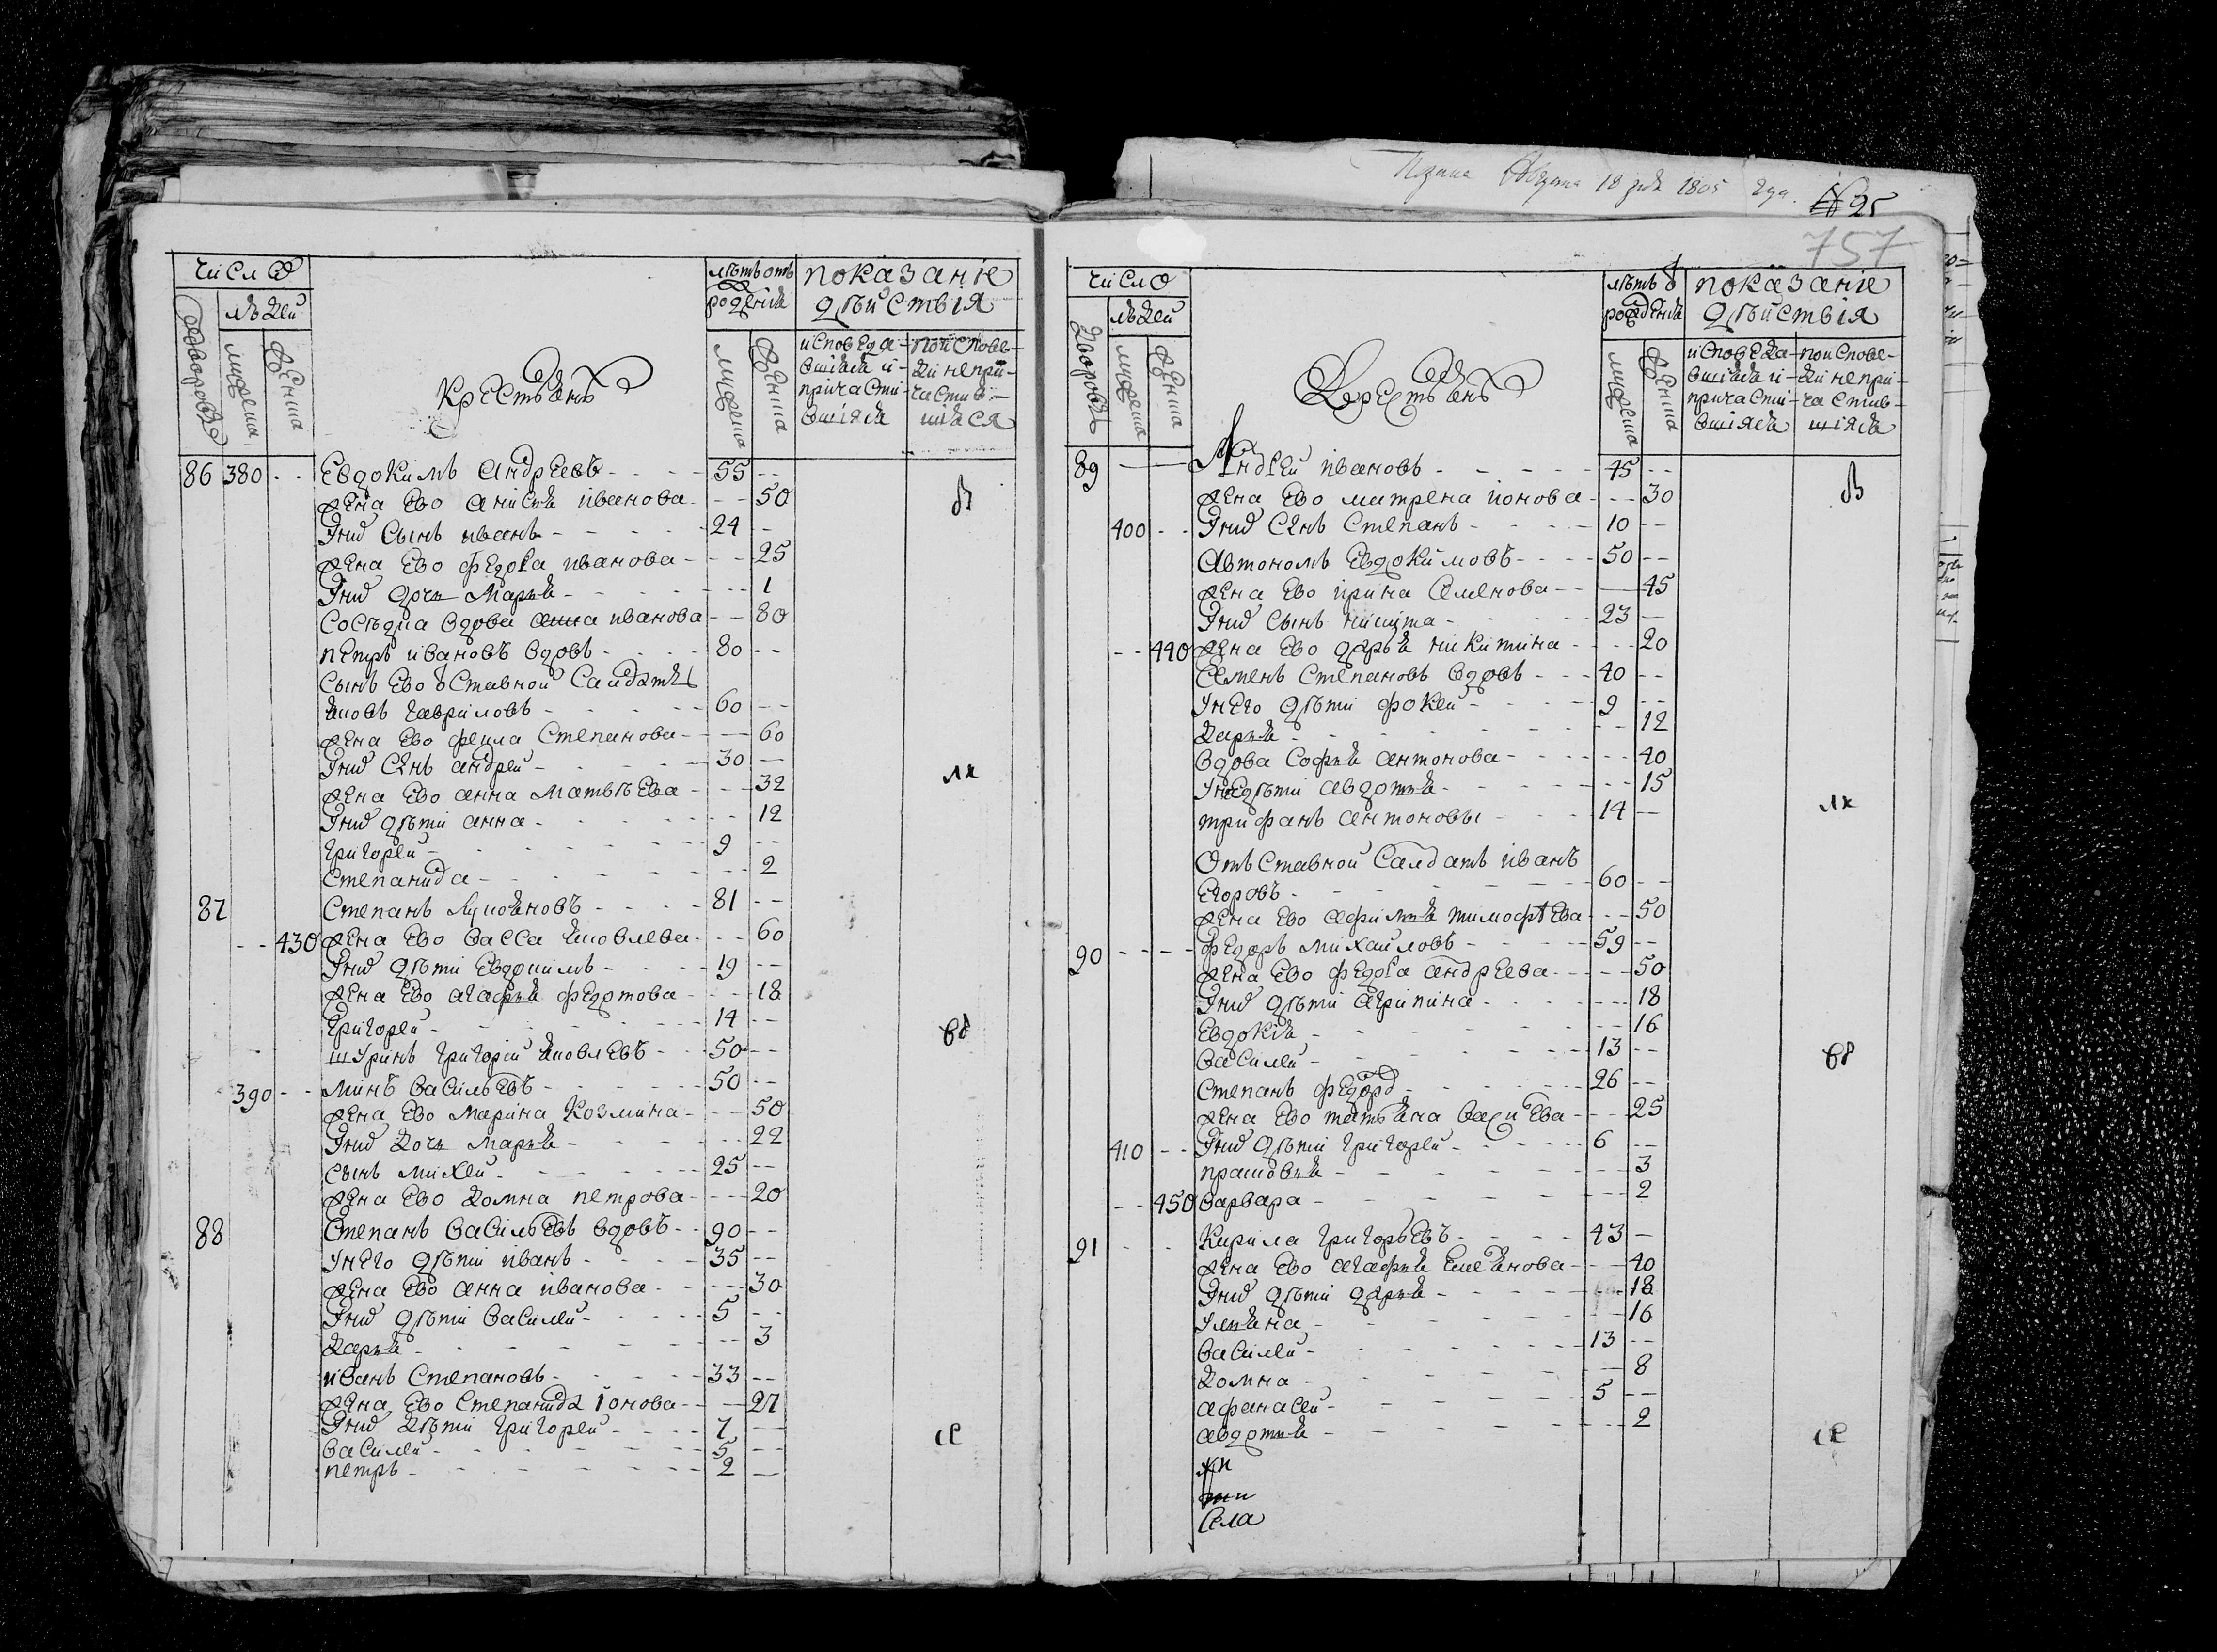 Число
людей
дворовъ
мужеска
женска
Крестьянъ
лѣтъ отъ
рожденiя
мужеска
женска
показанiе
дѣйствiя
исповеда-
вшiяся и
причасти-
вшiяся
по испове-
ди непри-
частив-
шiяся
86 380 - - Евдокимъ Андреевъ - - 55 - -
жена Ево анисья иванова - - 50
Унихъ Сынъ иванъ - - 24 - -
жена Ево федосa иванова - - 25
Унихъ дочь Марья - - 1
Соседка вдова анна иванова - - 80
петръ ивановъ вдовъ - - 80 - -
Сынъ Ево оставной Салдатъ
Яковъ Гавриловъ - - 60 - -
жена Ево фекла Степанова - - 60
Унихъ Сынъ андрей - - 30 - -
жена Ево анна Матвѣева - - 32
Унихъ дѣти анна - - 12
Григорей - - 9 - -
Степанида - - 2
87 Степанъ Лукояновъ - - 81 - -
- - 430 жена Ево васса Яковлева - - 60
Унихъ дѣти Евдокимъ - - 19 - -
жена Ево агафья федотова - - 18
Григорей - - 14 - -
шуринъ григорий Яковлевъ - - 50 - -
390 - - Минъ васильевъ - - 50 - -
жена Ево Марина Козмина - - 50
Унихъ дочь Марья - - 22
Сынъ михей - - 25 - -
жена Ево домна петрова - - 20
88 Степанъ васильевъ вдовъ - - 90 - -
Унего дѣти иванъ - - 35 - -
жена Ево анна иванова - - 30
Унихъ дѣти василей - - 5 - -
дарья - - 3
иванъ Степановъ - - 33 - -
жена Ево Степанида iонова - - 27
Унихъ дѣти григорей - - 7 - -
василей - - 5 - -
петръ - - 2 - -
18 дня 1805 года.
25
757
Число
людей
дворовъ
мужеска
женска
Крестьянъ
лѣтъ
рожденiя
мужеска
женска
показанiе
дѣйствiя
исповеда-
вшiяся и
причасти-
вшiяся
по испове-
ди непри-
частив-
шiяся
89 - - Андрей ивановъ - - 45 - -
жена Ево матрена ионова - - 30
400 - - Унихъ Сынъ Степанъ - - 10 - -
Автономъ Евдокимовъ - - 50 - -
жена Ево ирина Семенова - - 45
Унихъ Сынъ никита - - 23 - -
- - 440 жена Ево дарья никитина - - 20
Семенъ Степановъ вдовъ - - 40 - -
Унего дѣти фокей - - 9 - -
дарья - - 12
вдова Софья антонова - - 40
Унея дѣти авдотья - - 15
трифанъ антоновы - - 14 - -
Отъставной Салдатъ иванъ
Егоровъ - - 60 - -
жена Ево афимья тимофѣева - - 50
90 - - федоръ михайловъ - - 59 - -
жена Ево федосa андреева - - 50
Унихъ дѣти агрипина - - 18
Евдокiя - - 16
василей - - 13 - -
Степанъ федоровъ - - 26 - -
жена Ево татьяна васильева - - 25
410 - - Унихъ дѣти григорей - - 6 - -
прасковья - - 3
- - 450 варвара - - 2
91 - - Кирила григорьевъ - - 43 - -
жена Ево агафья Емельянова - - 40
Унихъ дѣти дарья - - 18
Ульяна - - 16
василей - - 13 - -
домна - - 8
афанасей - - 5 - -
авдотья - - 2
Села